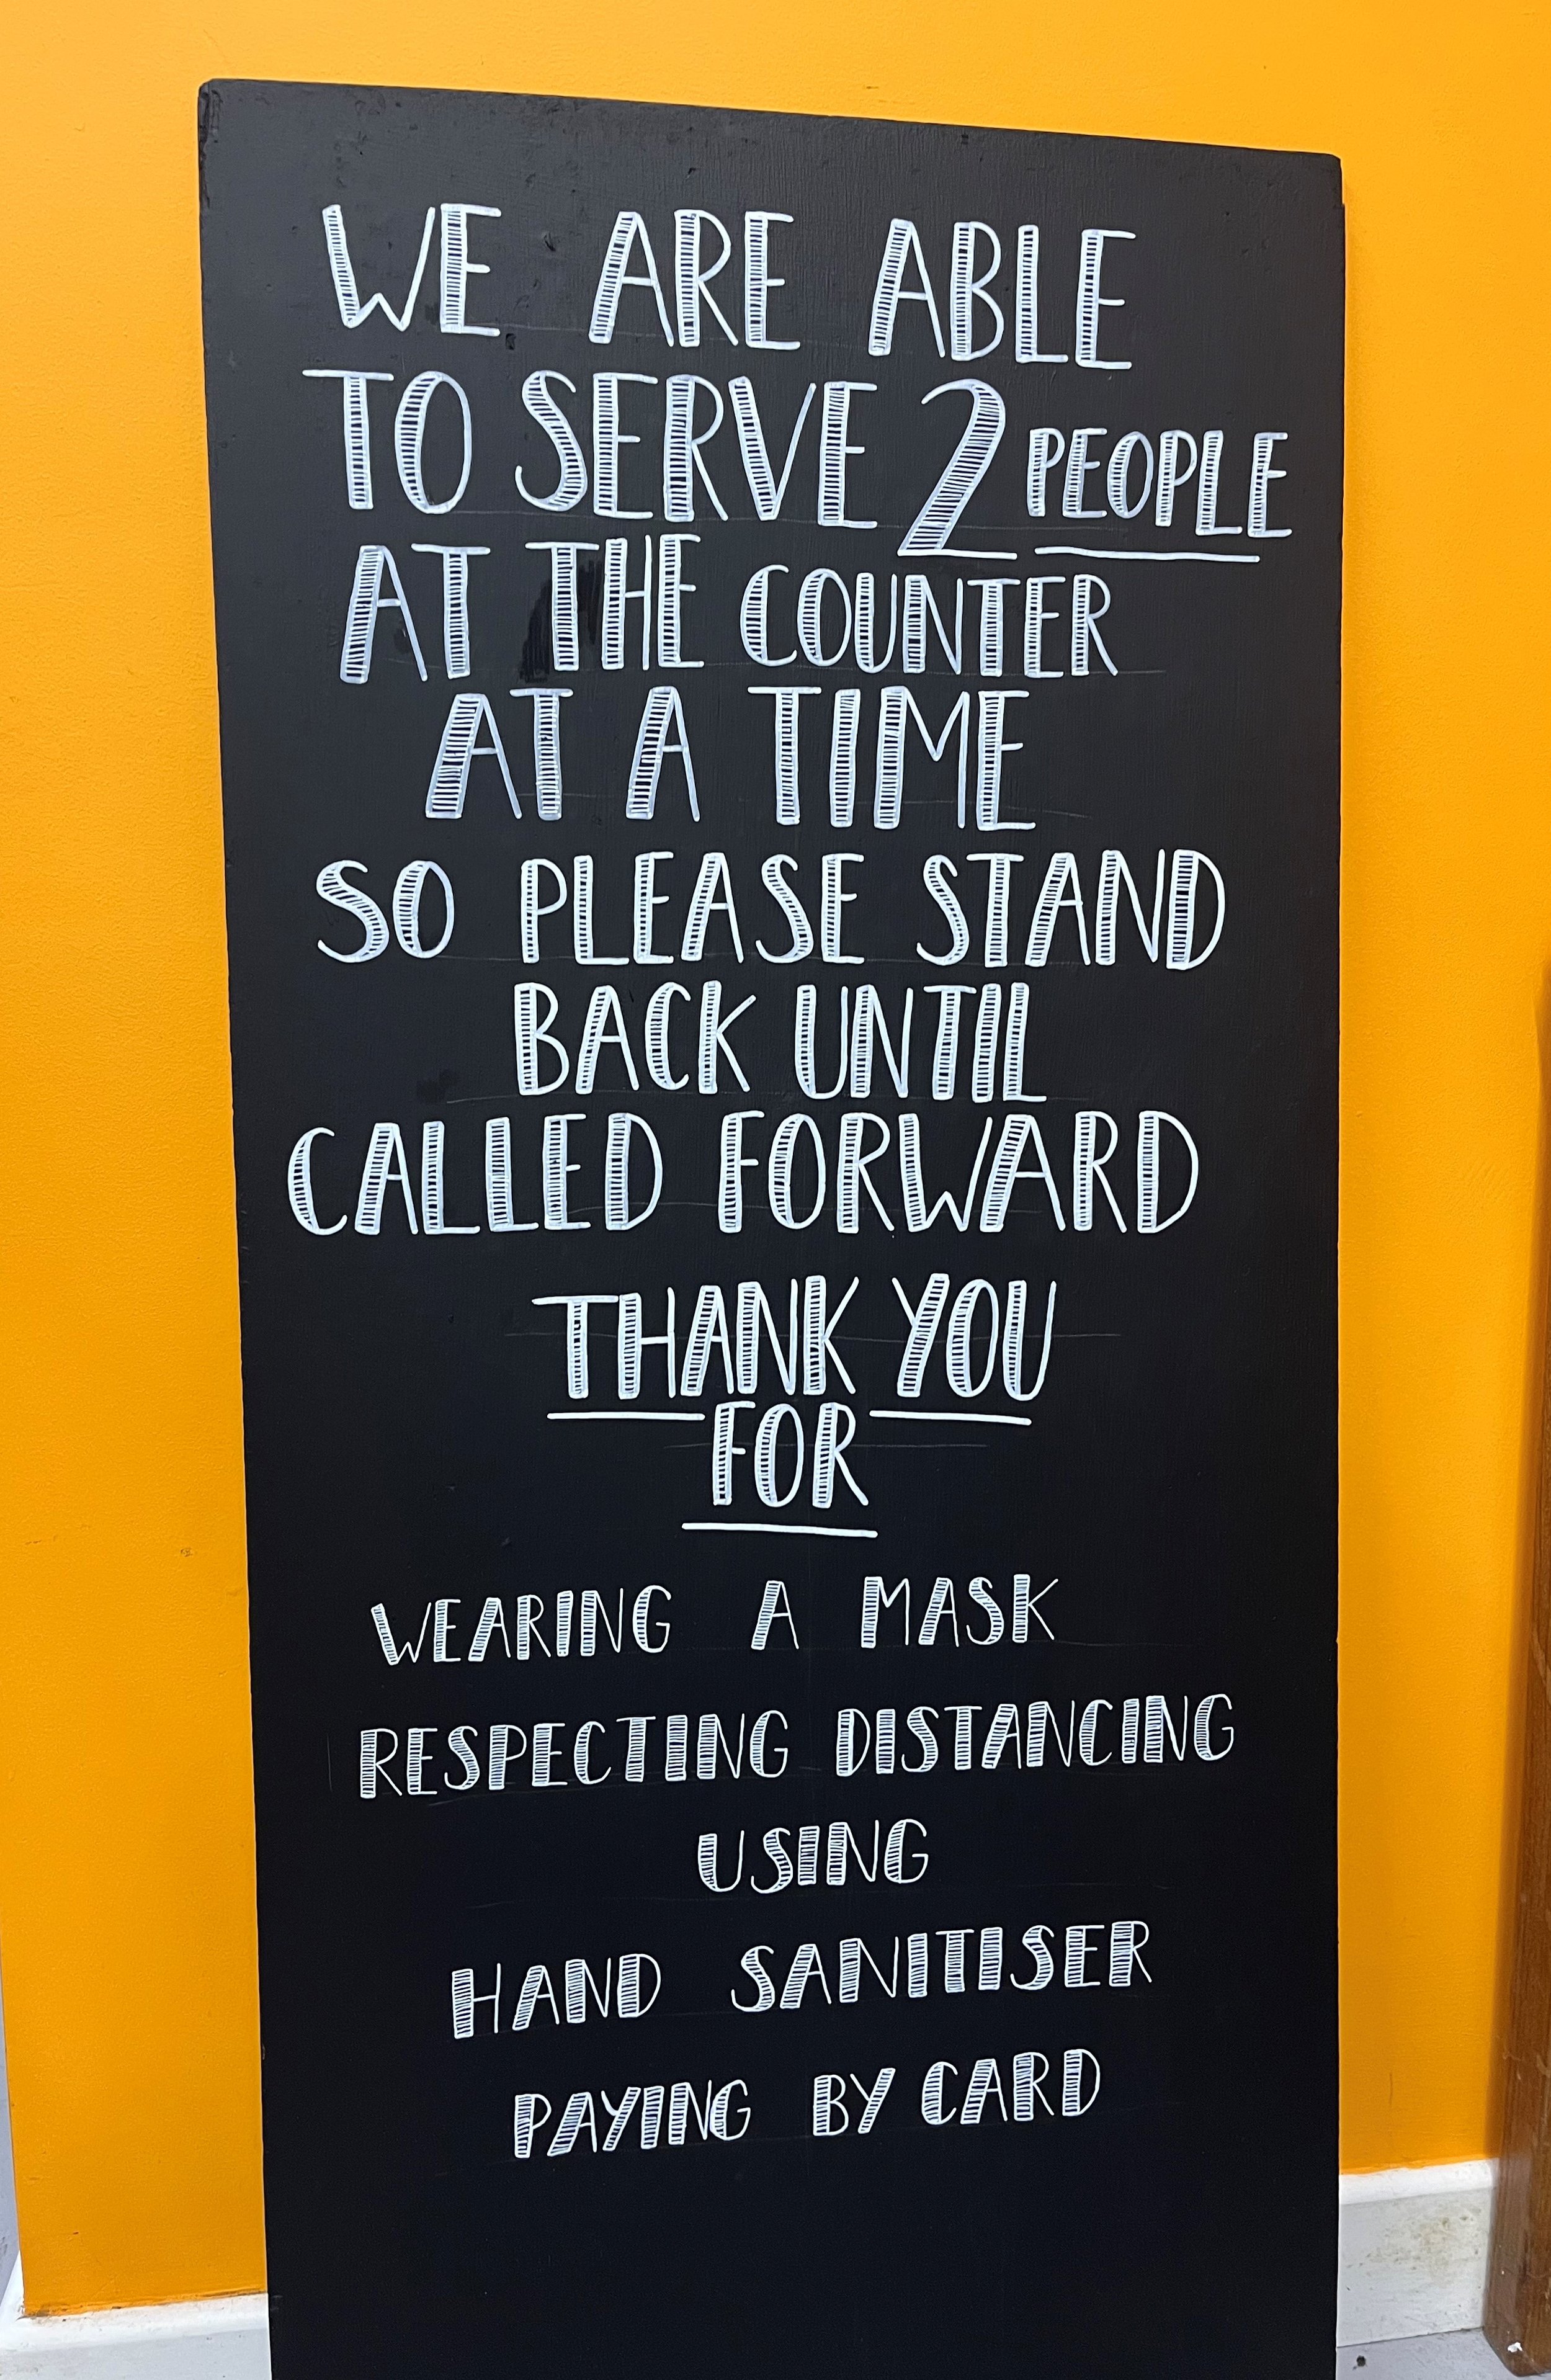 WE ARE ABLE
TO SERVE 2 PEOPLE
AT THE COUNTER
AT A TIME
SO PLEASE STAND
BACK UNTIL
CALLED FORWARD
THANK YOU
FOR
WEARING A MASK
RESPECTING DISTANCING
USING
HAND SANITISER
PAYING BY CARD